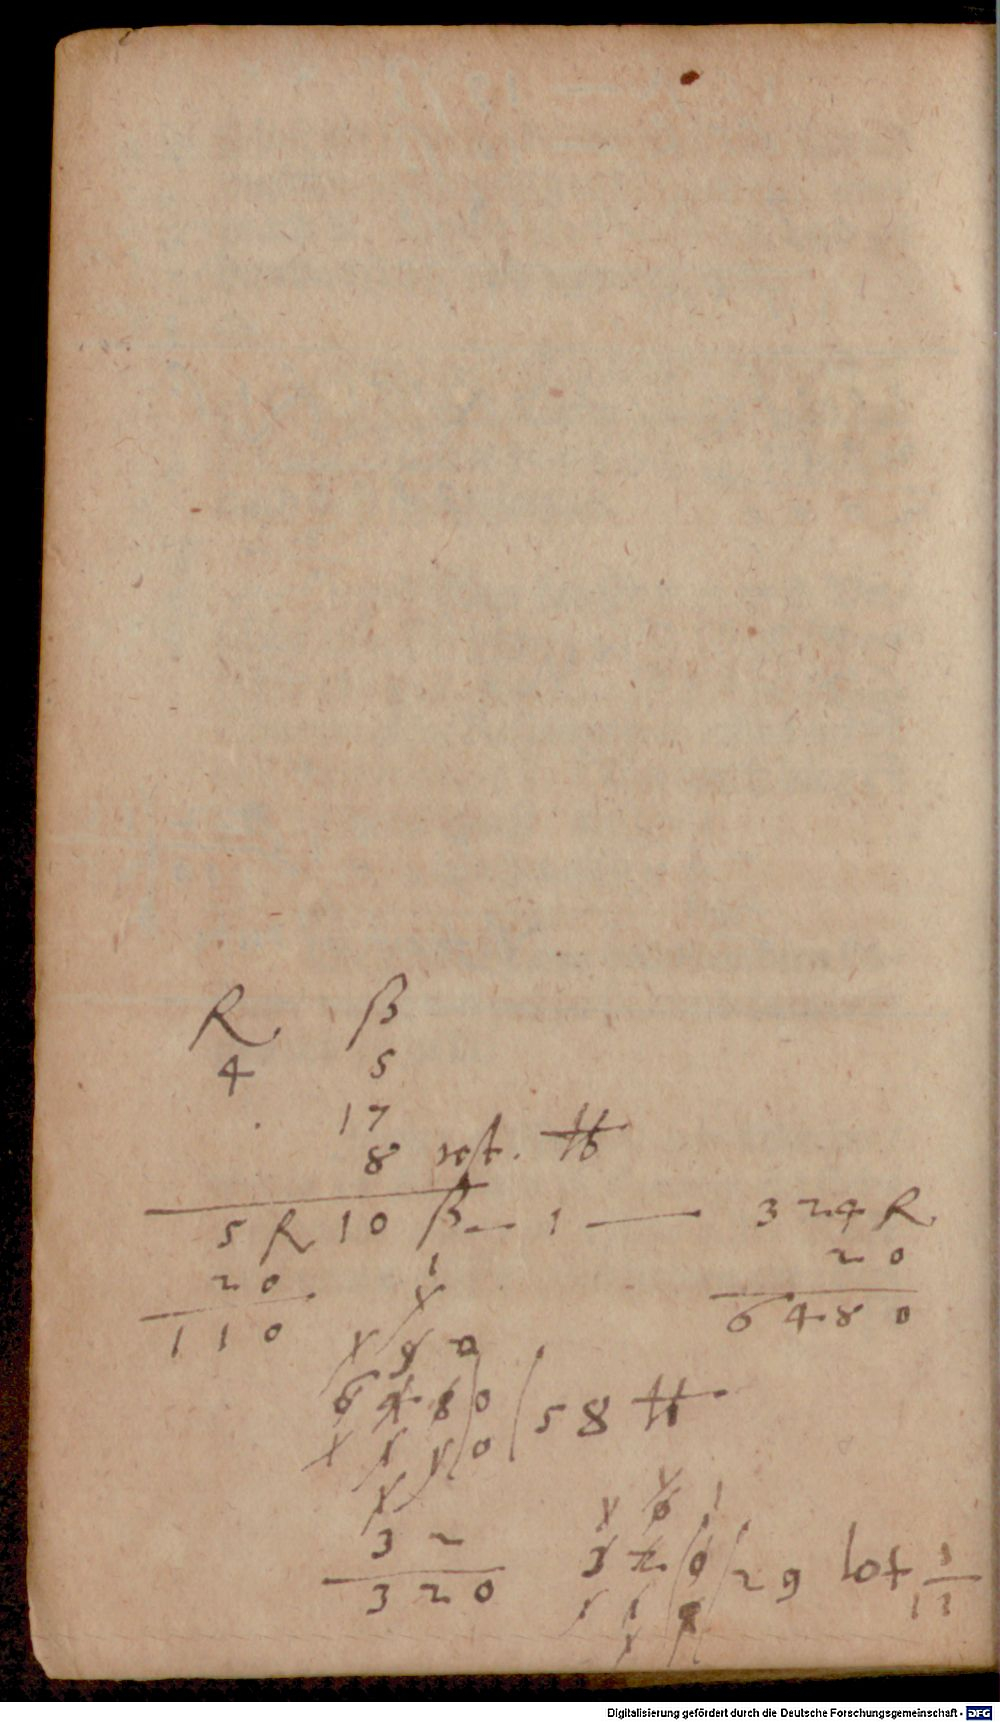 R ß
4 5
17
8 ℔
5 R 10 ß — 1 — 324 R
20 20
110 6480
1
1
1 9 0
6480 58 ℔
1110
1
32
320
1 0 1
320 29 lot 1/11
1 1
1
Digitalisierung gefördert durch die Deutsche Forschungsgemeinschaft - DFG